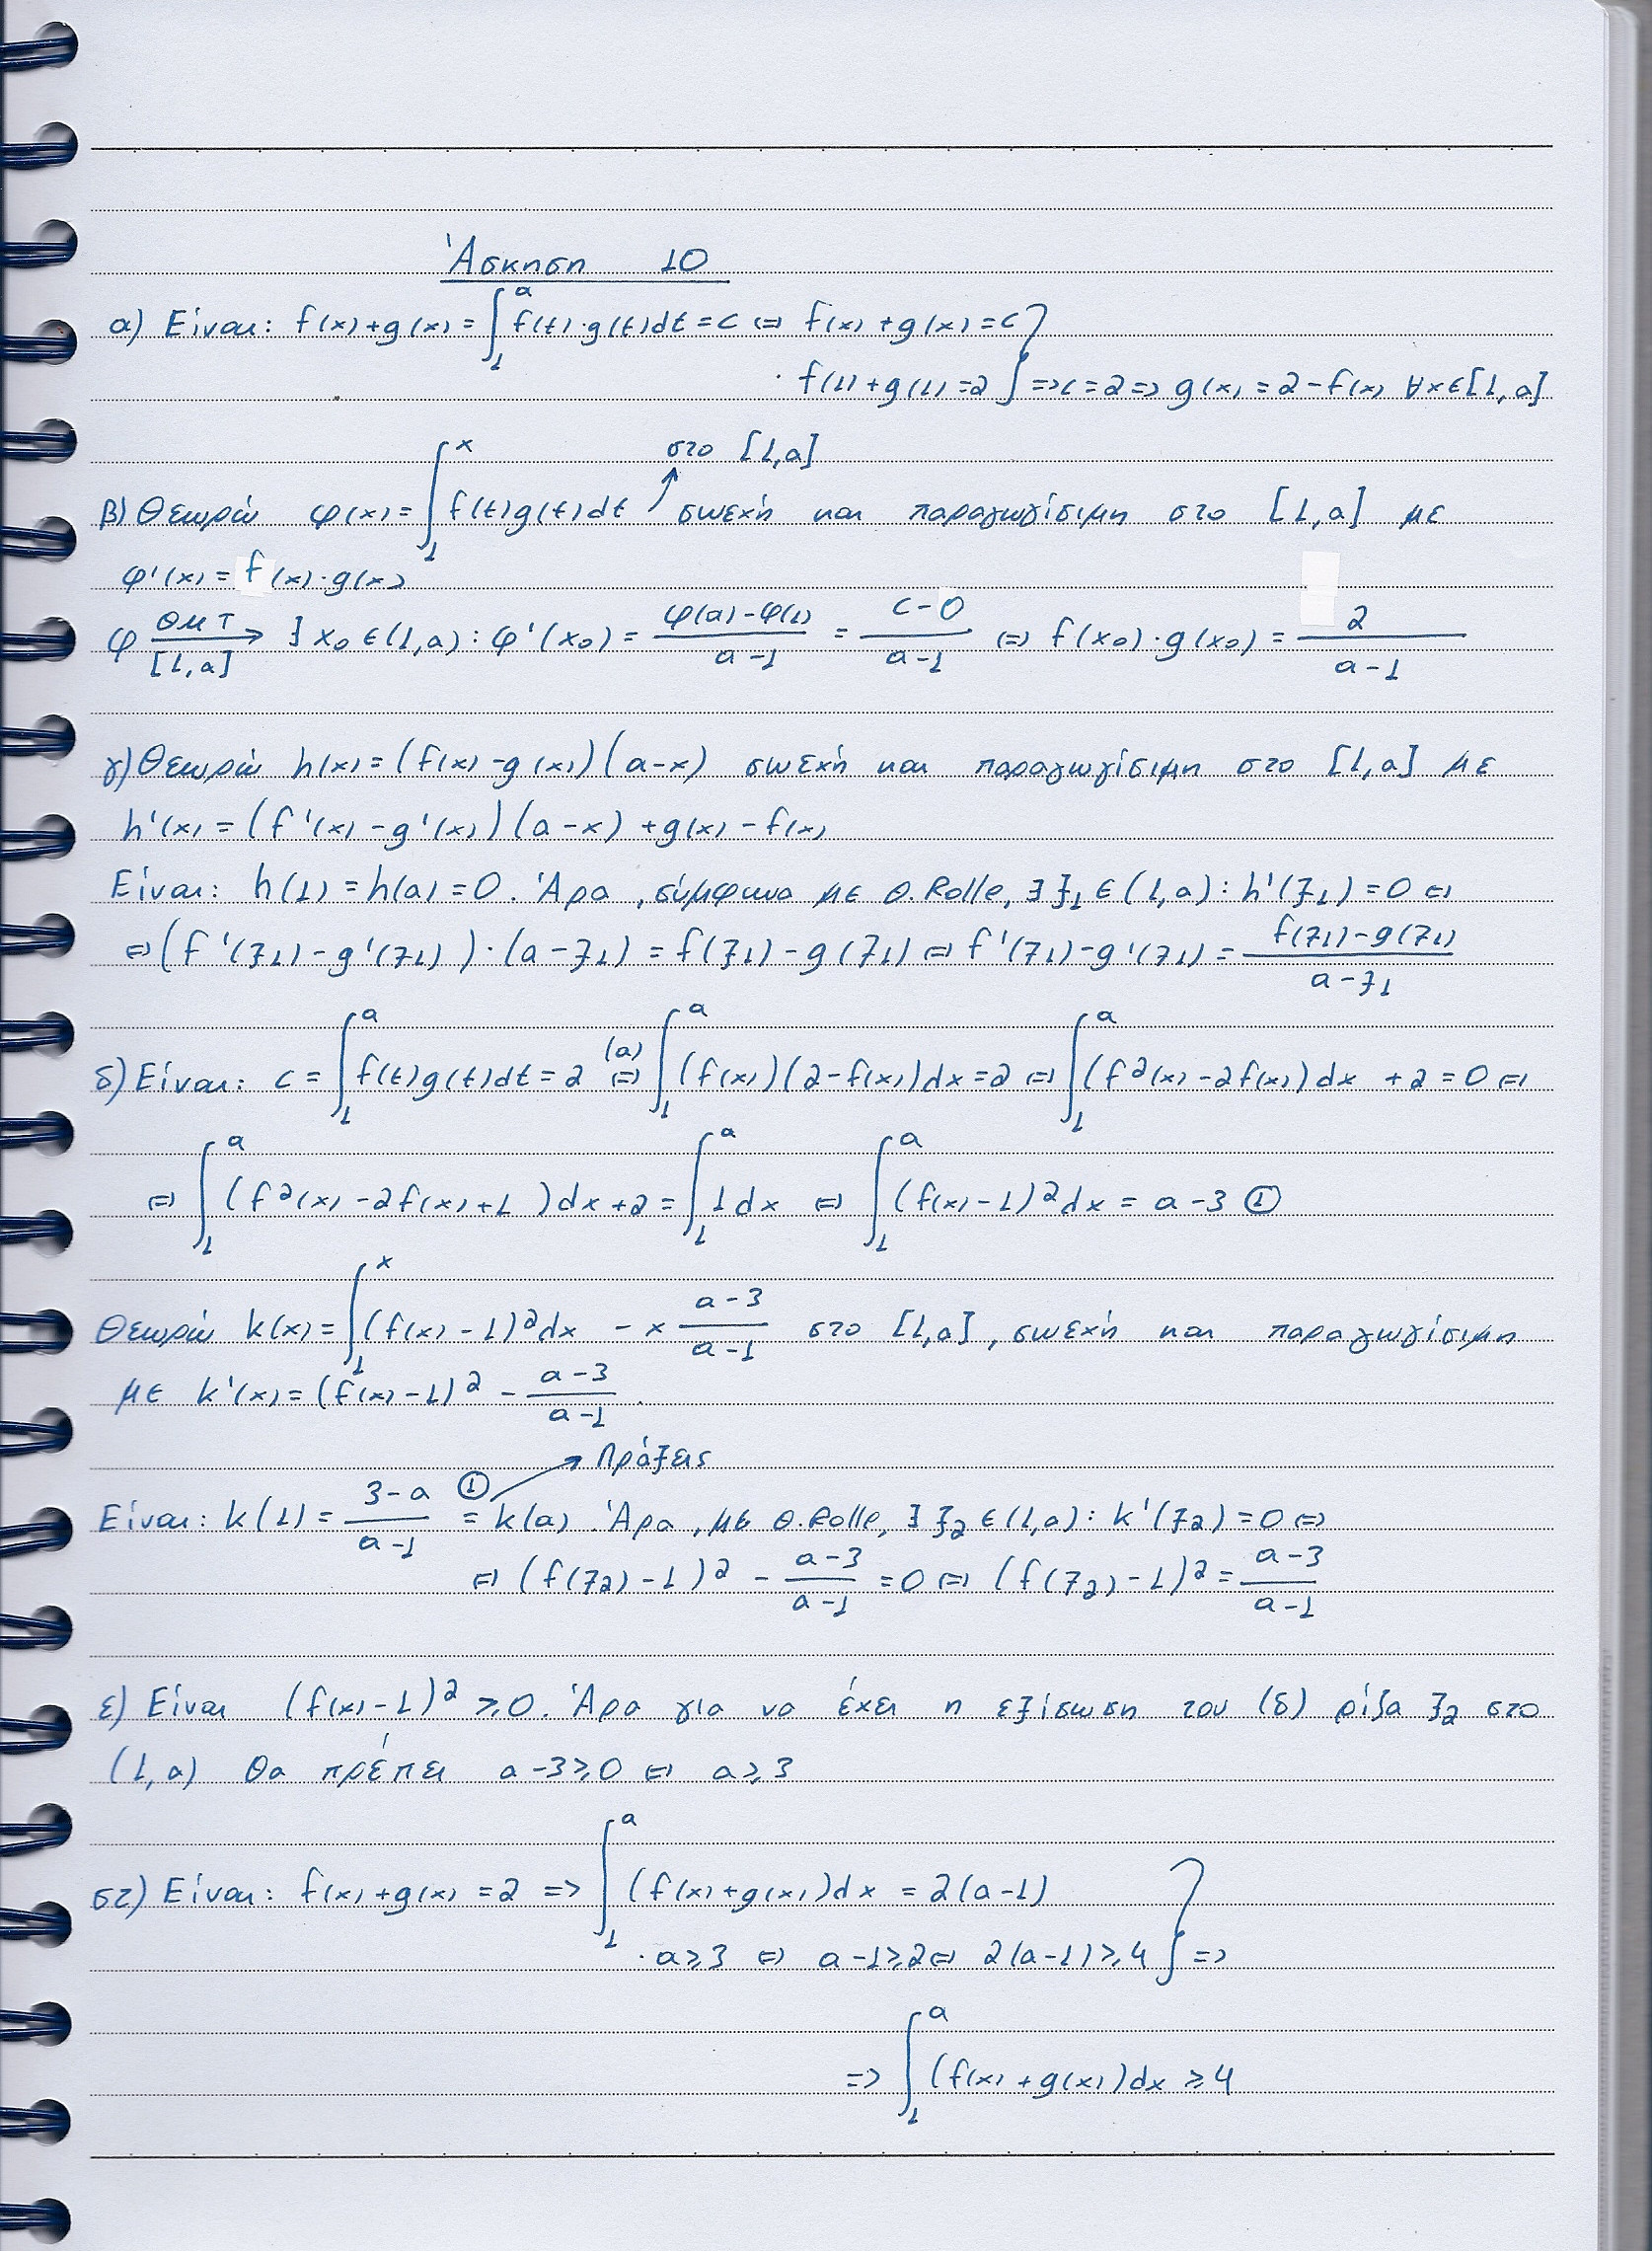 Άσκηση 10
α) Είναι: f(x)+g(x) = ∫₁ᵃ f(t)·g(t)dt = c ⇔ f(x)+g(x) = c }
· f(1)+g(1) = 2 } ⇒ c = 2 ⇒ g(x) = 2-f(x) ∀x∈[1,a]
στο [1,a]
β) Θεωρώ φ(x) = ∫₁ˣ f(t)g(t)dt ↗ συνεχή και παραγωγίσιμη στο [1,a] με
φ'(x) = f(x)·g(x)
φ —ΘΜΤ/[1,a]→ ∃ x₀ ∈(1,a): φ'(x₀) = (φ(a)-φ(1))/(a-1) = (c-0)/(a-1) ⇔ f(x₀)·g(x₀) = 2/(a-1)
γ) Θεωρώ h(x) = (f(x)-g(x))(a-x) συνεχή και παραγωγίσιμη στο [1,a] με
h'(x) = (f'(x)-g'(x))(a-x) + g(x) - f(x)
Είναι: h(1) = h(a) = 0. Άρα, σύμφωνα με Θ. Rolle, ∃ ξ₁ ∈(1,a): h'(ξ₁) = 0 ⇔
⇔ (f'(ξ₁)-g'(ξ₁))·(a-ξ₁) = f(ξ₁)-g(ξ₁) ⇔ f'(ξ₁)-g'(ξ₁) = (f(ξ₁)-g(ξ₁))/(a-ξ₁)
δ) Είναι: c = ∫₁ᵃ f(t)g(t)dt = 2 ⇔(α) ∫₁ᵃ (f(x))(2-f(x))dx = 2 ⇔ ∫₁ᵃ (f²(x)-2f(x))dx + 2 = 0 ⇔
⇔ ∫₁ᵃ (f²(x)-2f(x)+1)dx + 2 = ∫₁ᵃ 1dx ⇔ ∫₁ᵃ (f(x)-1)²dx = a-3 ①
Θεωρώ k(x) = ∫₁ˣ (f(x)-1)²dx - x (a-3)/(a-1) στο [1,a], συνεχή και παραγωγίσιμη
με k'(x) = (f(x)-1)² - (a-3)/(a-1).
Πράξεις
Είναι: k(1) = (3-a)/(a-1) =① k(a). Άρα, με Θ. Rolle, ∃ ξ₂ ∈(1,a): k'(ξ₂) = 0 ⇔
⇔ (f(ξ₂)-1)² - (a-3)/(a-1) = 0 ⇔ (f(ξ₂)-1)² = (a-3)/(a-1)
ε) Είναι (f(x)-1)² ≥ 0. Άρα για να έχει η εξίσωση του (δ) ρίζα ξ₂ στο
(1,a) θα πρέπει a-3 ≥ 0 ⇔ a ≥ 3
στ) Είναι: f(x)+g(x) = 2 ⇒ ∫₁ᵃ (f(x)+g(x))dx = 2(a-1) }
· a ≥ 3 ⇔ a-1 ≥ 2 ⇔ 2(a-1) ≥ 4 } ⇒
⇒ ∫₁ᵃ (f(x)+g(x))dx ≥ 4